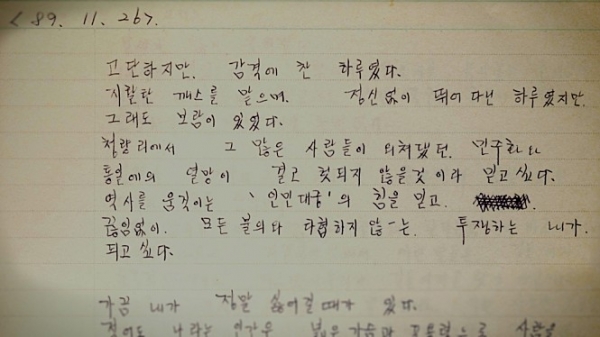 <89. 11. 26>.
고단하지만, 감격에 찬 하루였다.
지랄탄 깨스를 맡으며, 정신없이 뛰어다닌 하루였지만,
그래도 보람이 있었다.
청량리에서 그 많은 사람들이 외쳐댔던, 민주화와
통일에의 열망이 결코 헛되지 않을것이라 믿고 싶다.
역사를 움직이는 '인민대중'의 힘을 믿고,
끊임없이, 모든 불의와 타협하지 않-는, 투쟁하는 내가
되고 싶다.
가끔 내가 정말 싫어질때가 있다.
적어도 나라는 인간은 넓은 가슴과 포용력으로 사람을